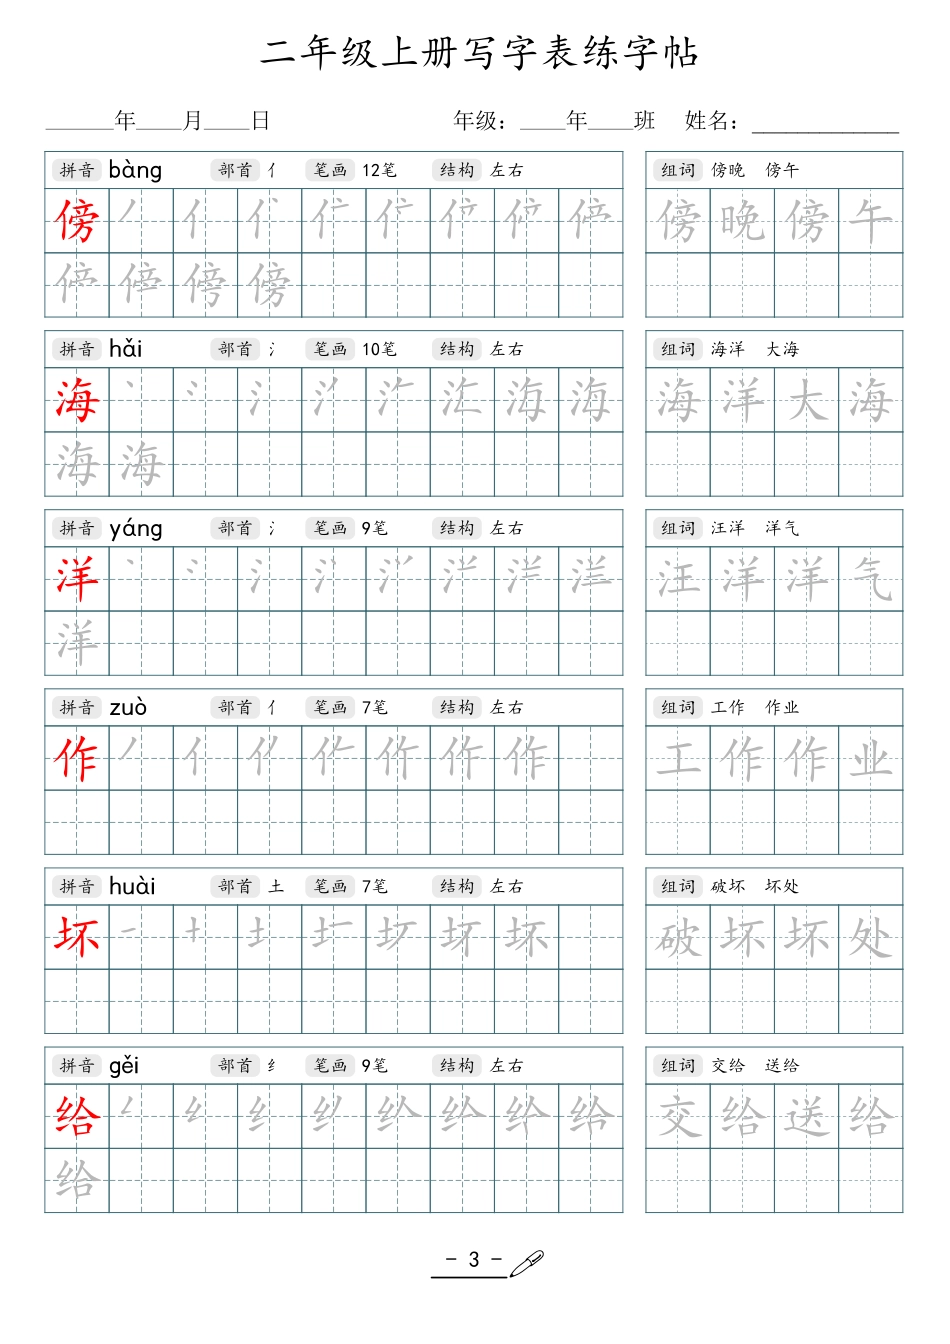 二年级上册写字表练字帖
______年____月____日 年级：____年____班 姓名：_____________
拼音 bàng 部首 亻 笔画 12笔 结构 左右 组词 傍晚 傍午
傍 傍晚傍午
傍
拼音 hǎi 部首 氵 笔画 10笔 结构 左右 组词 海洋 大海
海 海 海 海洋大海
海 海
拼音 yáng 部首 氵 笔画 9笔 结构 左右 组词 汪洋 洋气
洋 汪洋洋气
洋
拼音 zuò 部首 亻 笔画 7笔 结构 左右 组词 工作 作业
作 作 工作作业
拼音 huài 部首 土 笔画 7笔 结构 左右 组词 破坏 坏处
坏 坏 破坏坏处
拼音 gěi 部首 纟 笔画 9笔 结构 左右 组词 交给 送给
给 交给送给
给
- 3 -